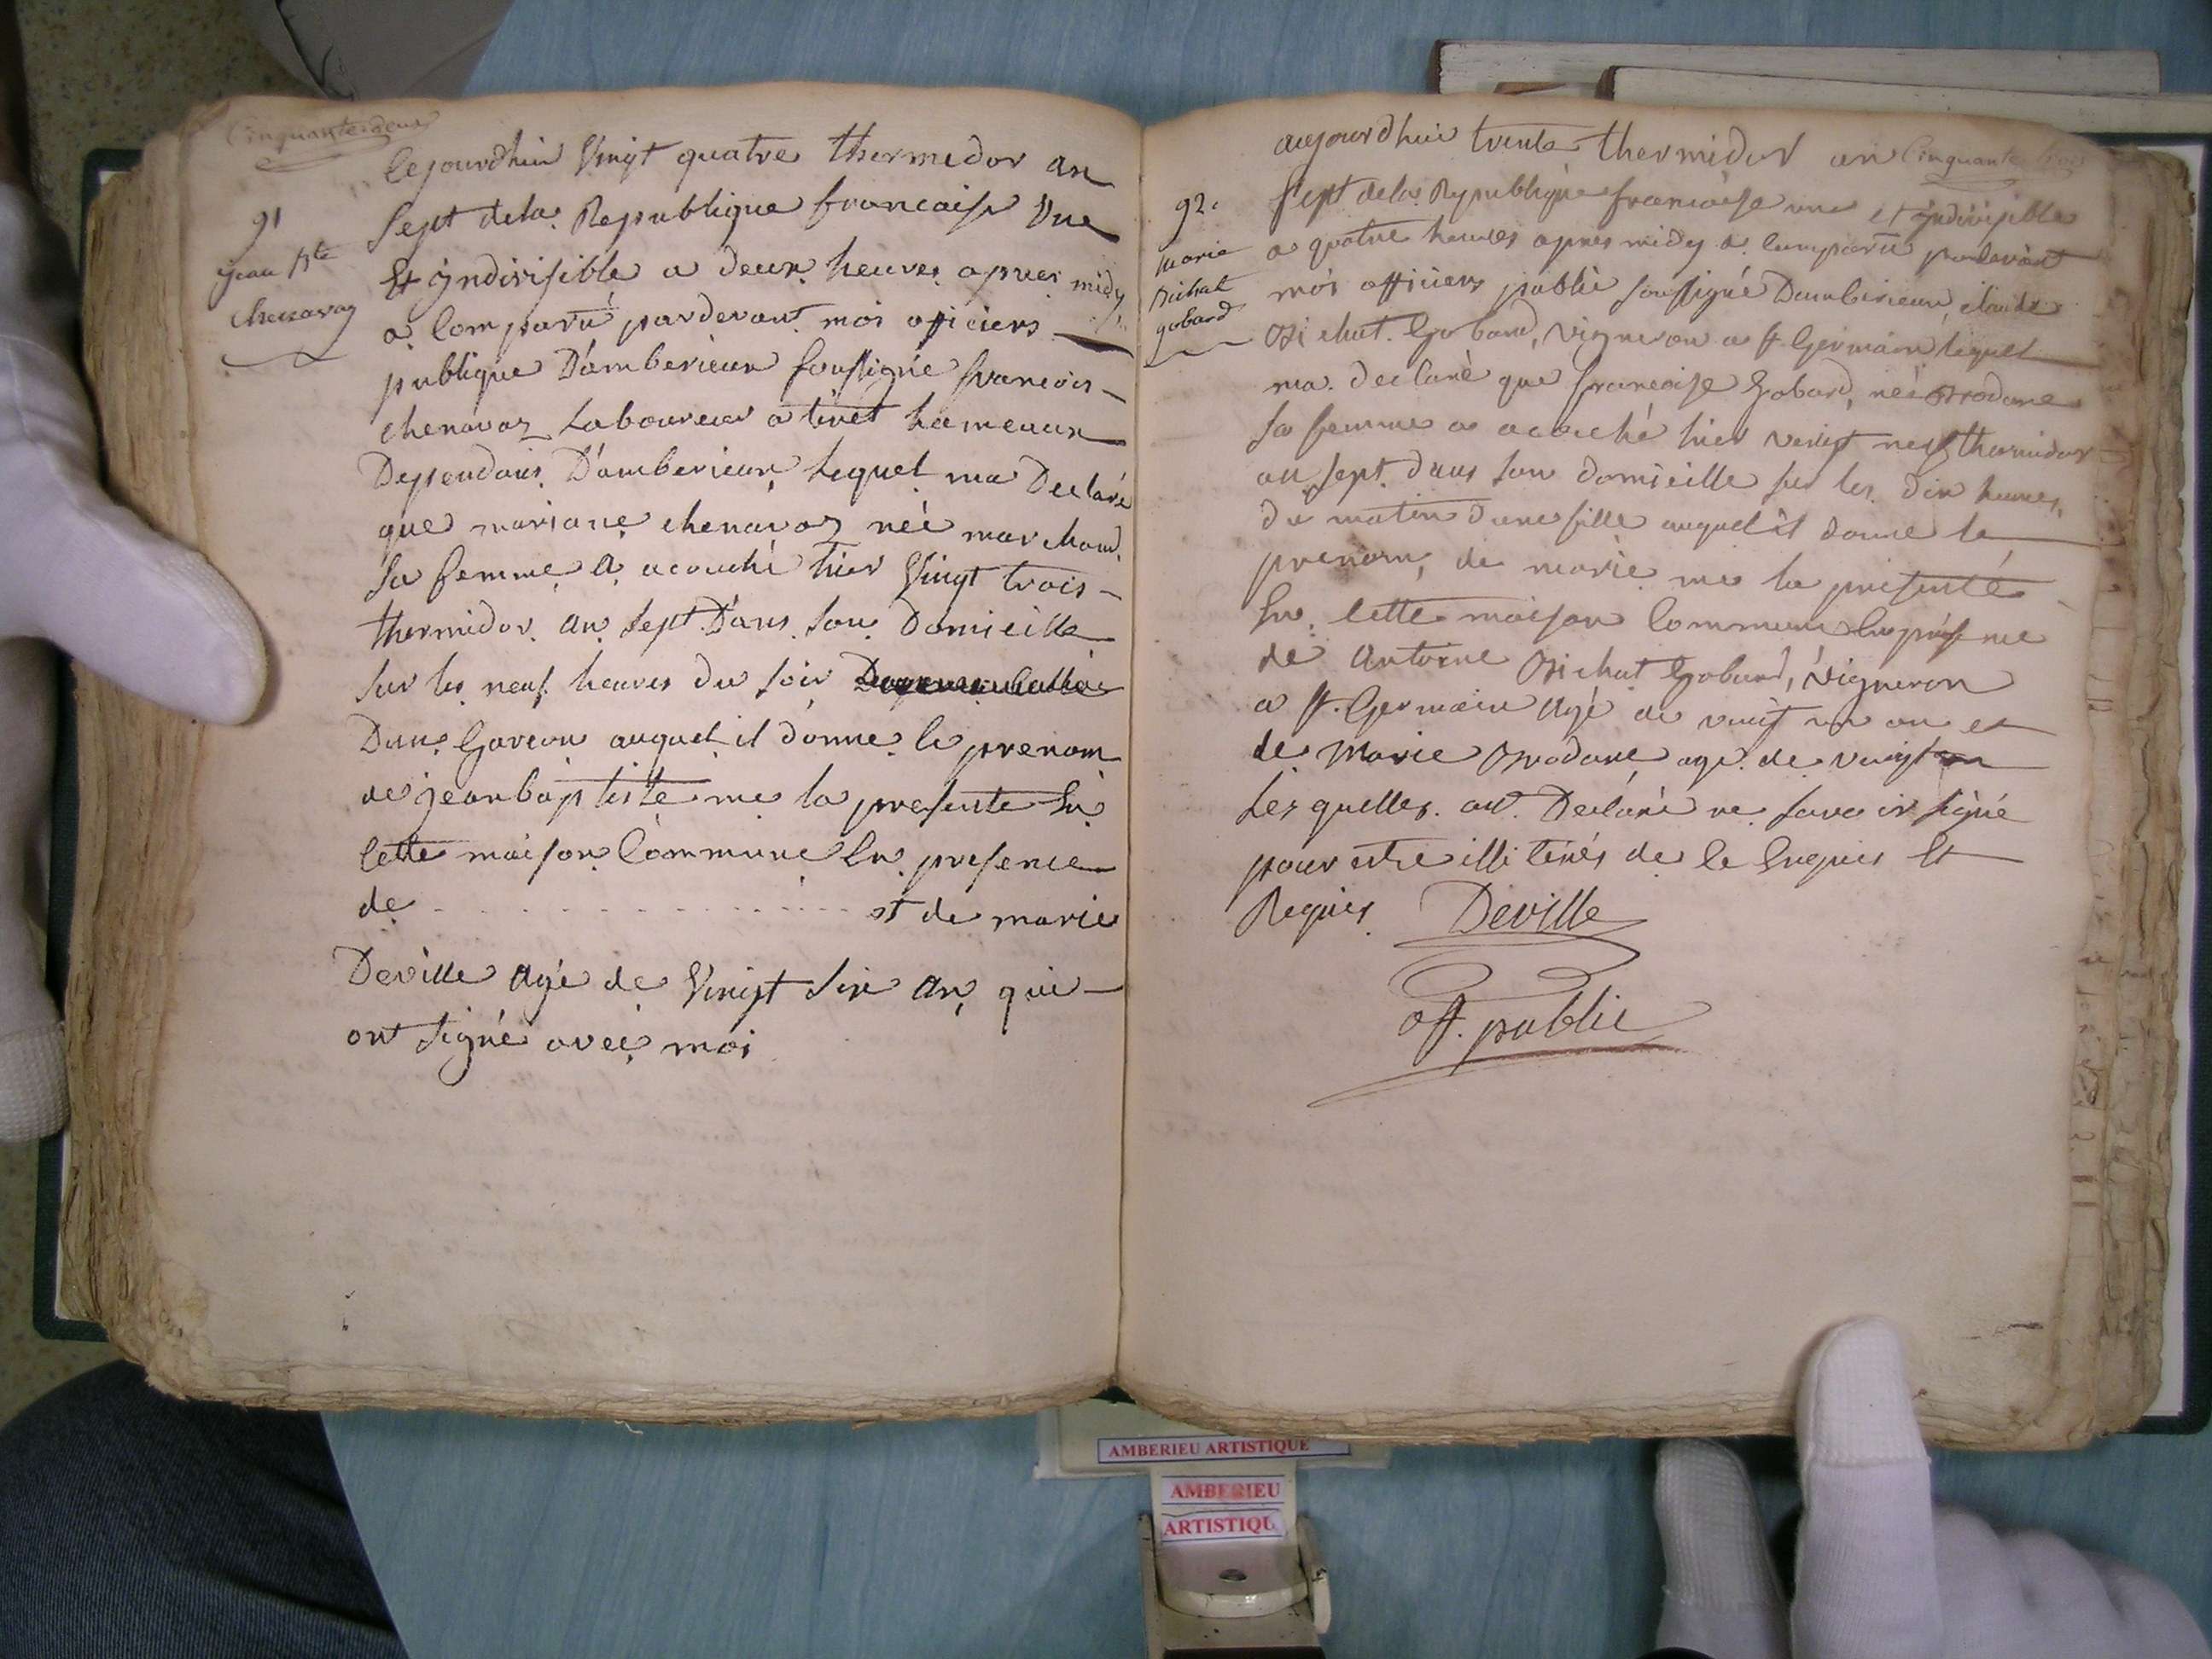 Cinquante deux
91
jean Bte
chenavaz
Cejourdhui Vingt quatre thermidor an
Sept de la Republique francaise Une
Et jndivisible a deux heures apres midy
a Comparû pardevant moi officiers
publique D'amberieux soussignée francois
chenavaz Laboureur a tiret hameaux
Dependans D'amberieux lequel ma Declaré
que mariane chenavaz née marchand
sa femme a acouché hier Vingt trois
thermidor an Sept Dans son Domicille
sur les neuf heures du soir
Dun Garcon auquel il donne le prenom
de jean baptiste me la presente En
Cette maison Commune En presence
de et de marie
Deville agé de Vingt six an, qui
ont signé avec moi
Cinquante trois
92.
Marie
Bichat
gobard
aujourdhui trente thermidor an
Sept de la Republique francaise une et jndivisible
a quatre heures apres midy a Comparu pardevant
moi officiers public soussigné Dambérieux, claude
Bichat Gobard, vigneron a st Germain lequel
ma declaré que francoise Gobard, née Brodane
sa femme a acouché hier vingt neuf thermidor
an sept dans son domicille sur les dix heures
du matin dune fille auquel il donne le
prenom, de marie me la presenté
En Cette maison Commune En presence
de Antoine Bichat Gobard, vigneron
a st. Germain agé de vingt un an et
de Marie Brodane, agé de vingt
Les quelles ont Declaré ne savoir signé
pour estre illiterés de Ce Enquis Et
Requis. Deville
off. public
AMBERIEU ARTISTIQUE
AMBERIEU
ARTISTIQU